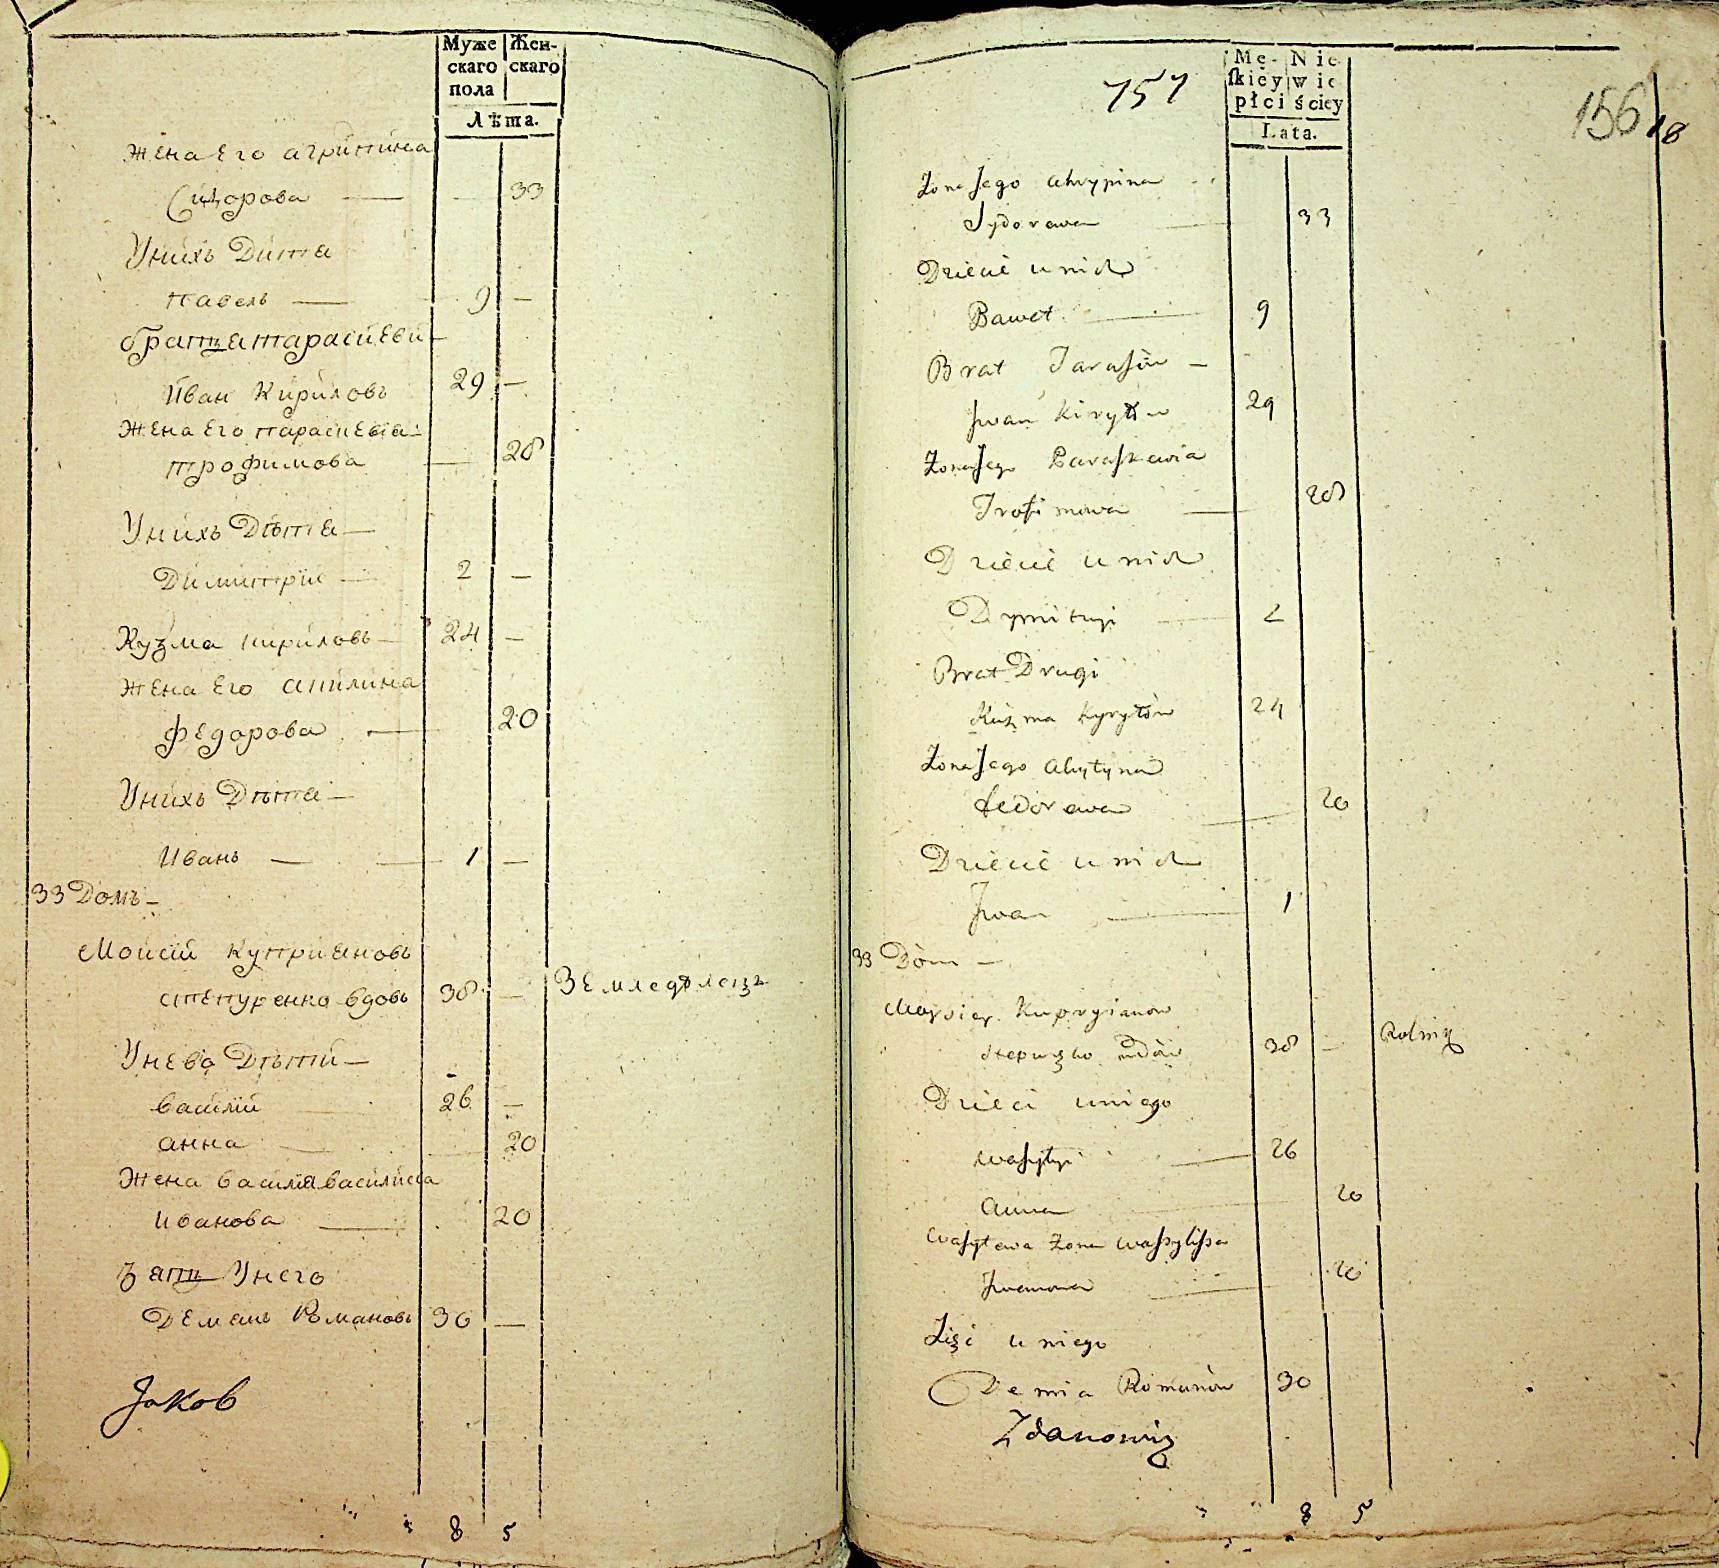 Муже Жен-
скаго скаго
пола
Лѣта.
Жена Его агрипина
Сидорова — — 33
Унихъ Дитя
павелъ — 9 —
братъ Тарасиеви —
Иван Кириловъ 29 —
Жена Его параскевiя —
трофимова — 28
Унихъ Дѣтя —
Димитрiй — 2 —
Кузма кириловъ — 24 —
Жена Его акилина
федорова — 20
Унихъ Дѣтя —
Иванъ — — 1 —
33 Домъ —
Моисiй куприяновъ
степуренко вдовъ 38 — Земледѣлецъ
Унево Дѣтiй —
василiй 26 —
анна — 20
Жена василия василиса
иванова — 20
зять Унего
Демянъ Романовъ 30 —
Jakob
8 5
757
Mę- Nie
skiey wie
płci ściey
Lata.
156
18
Żona Jego ahrypina
Sydorowa 33
Dziecie u nich
Paweł 9
Brat Tarasiów —
Jwan Kiryłów 29
Żona Jego Paraskewia
Trofimowa — 28
Dziecie u nich
Dymitryi 2
Brat Drugi
Kuzma Kyryłów 24
Żona Jego akylyna
fedorowa 20
Dziecie u nich
Jwan — 1
33 Dóm —
Moysiey Kupryianow
wdów 38 — Rolnik
Dzieci u niego
wasylyi — 26
anna 20
wasylowa Żona wassylissa
Jwanowa 20
Zięć u niego
Demia Romanów 30
Zdanowicz
8 5